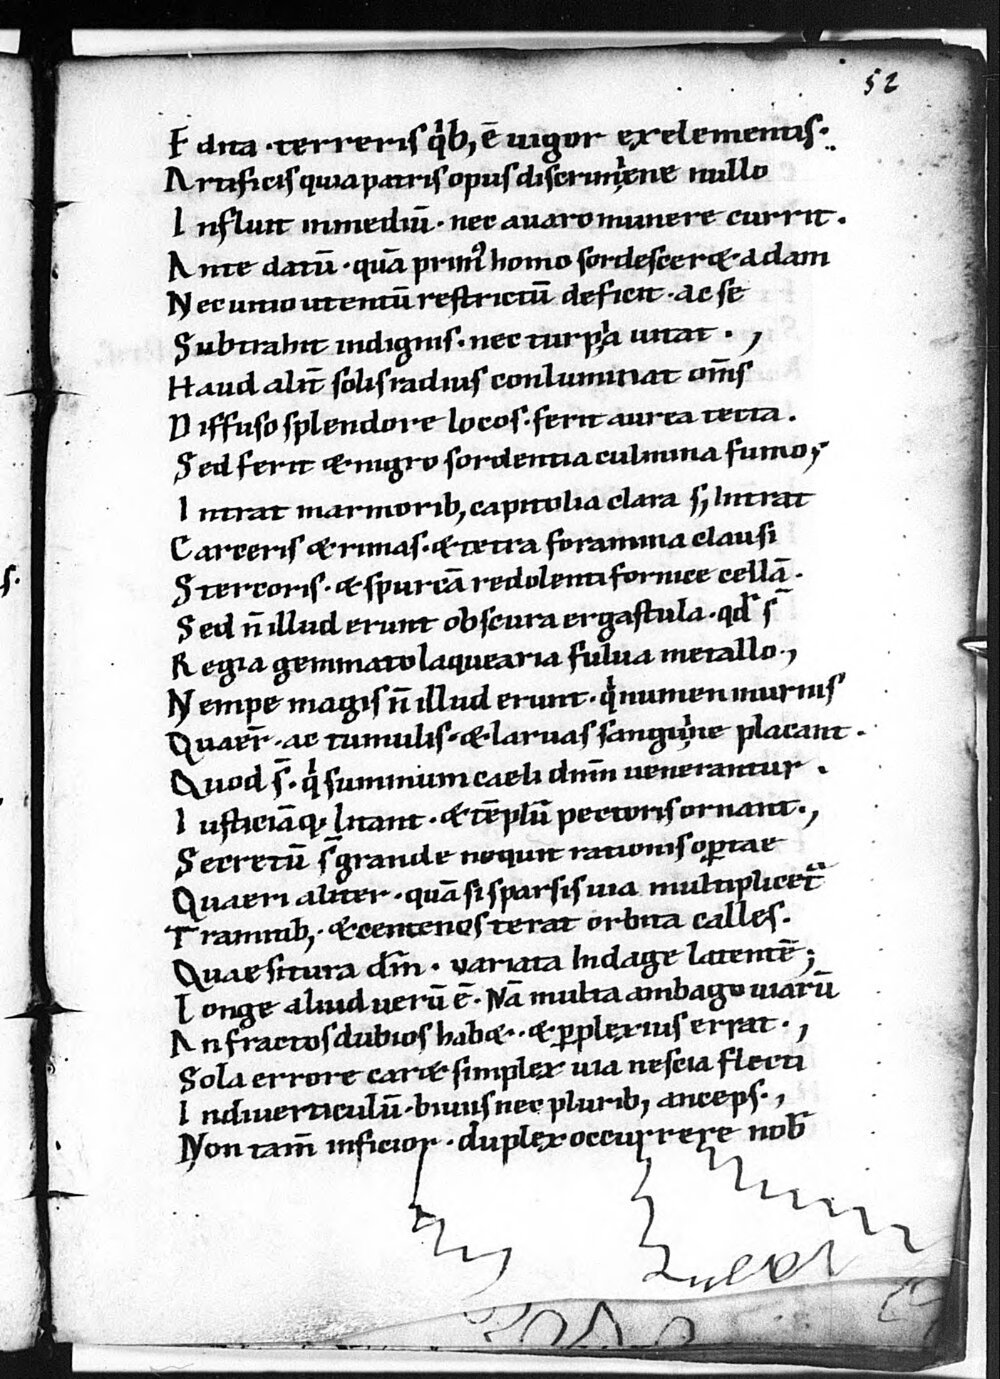 52
Edita · terreris qͥb; ē uigor exelementis·
Artificis quia patris opus discrimͥne nullo
Influit inmediū · nec auaro munere currit ·
Ante datū · quā primꝰ homo sordesceret adam
Nec uitio utentū restrictū deficit · ac se
Subtrahit indignis · nec turpͥa uitat · ,
Haud alit̄ solis radius conluminat om̄s
Diffuso splendore locos · ferit aurea tecta .
Sed ferit & nigro sordentia culmina fumo;
Intrat marmorib; capitolia clara s; Intrat
Carceris & rimas · & tetra foramina clausi
Stercoris · & spurcā redolenti fornice cellā ·
Sed n̄ illud erunt obscura ergastula · qd̄ s̄
Regia gemmato laquearia fulua metallo · ,
Nempe magis n̄ illud erunt · qͥ numen in urnis
Quaer̄ · ac tumulis · & laruas sangͥne placant ·
Quod s̄ · qͥ summum caeli dnm̄ uenerantur ·
Iusticiāq; litant · & tēplū pectoris ornant · ,
Secretū s̄ grande nequit rationis opertae
Quaeri aliter · quā si sparsis uia multiplicet᷑
Tramitib; · & centenos terat orbita calles ·
Quaesitura dm̄ · variata Indage latentē;
Longe aliud uerū ē · Nā multa ambago uiarū
Anfractos dubios habet · & ꝑplexius errat · ,
Sola errore caret simplex uia nescia flecti
Indiuerticulū · biuiis nec plurib; anceps · ,
Non tam̄ inficior · duplex occurrere nob̄
s·